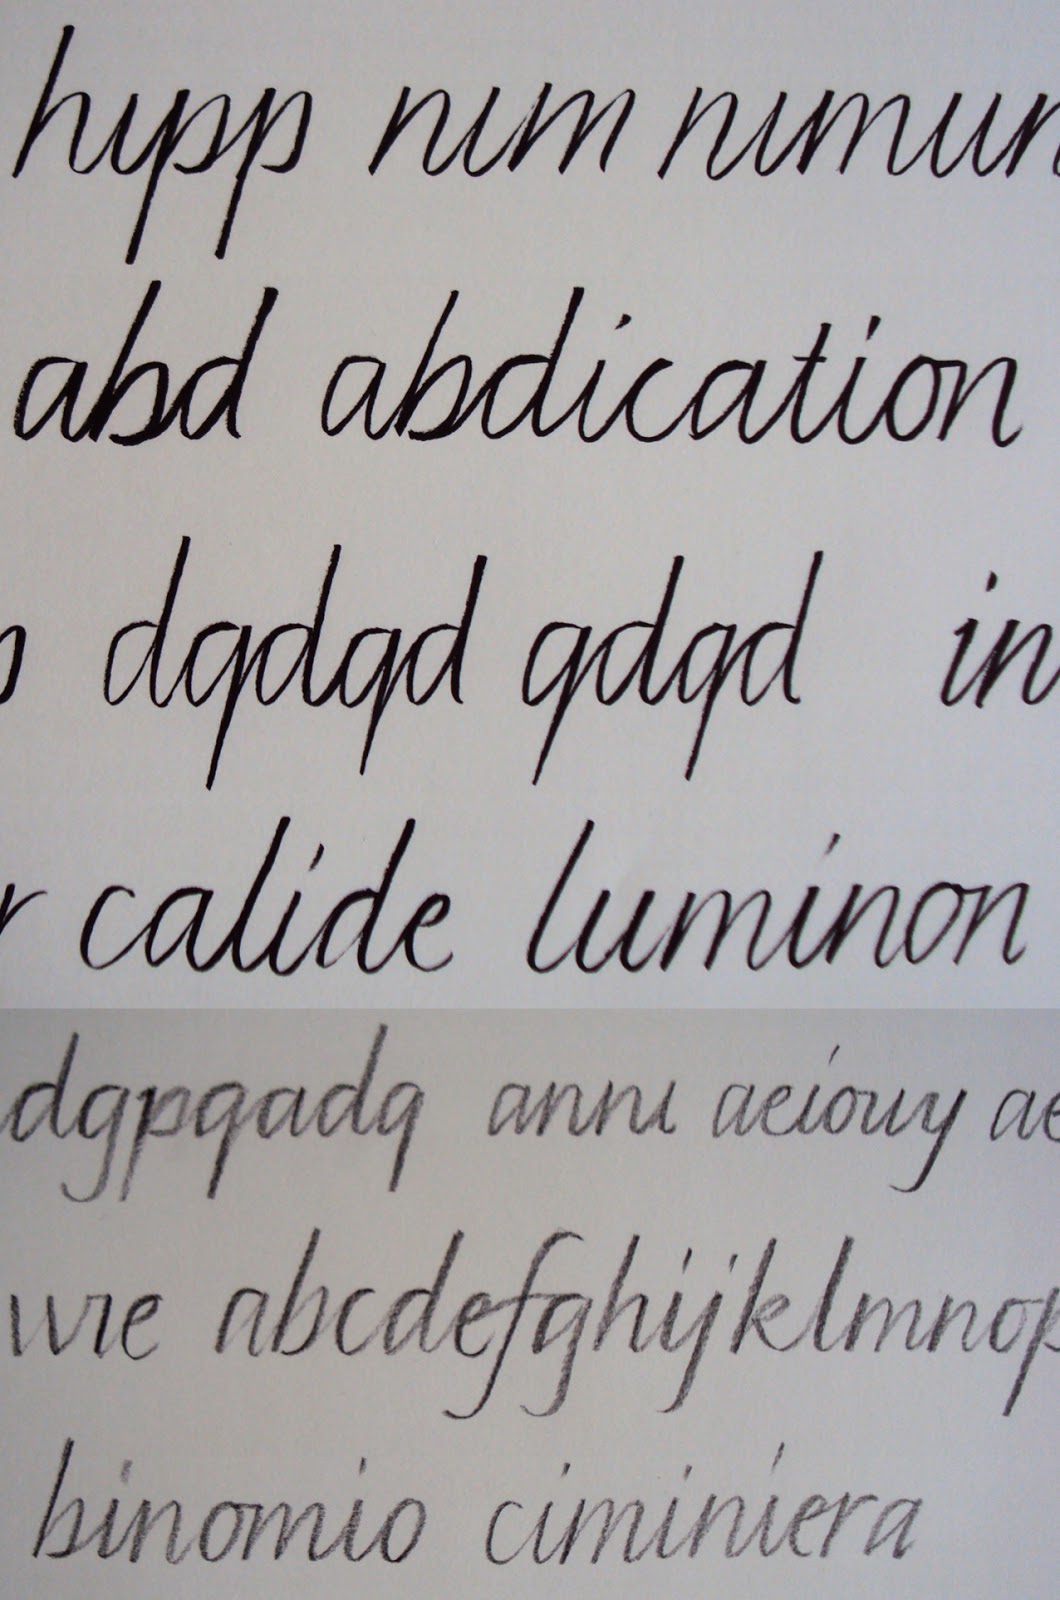 hıpp nım nımun
abd abdication
dqdqd qdqd in
r calide luminon
dgpqadq annı aeiouy ae
wre abcdefghijklmnop
binomio ciminiera